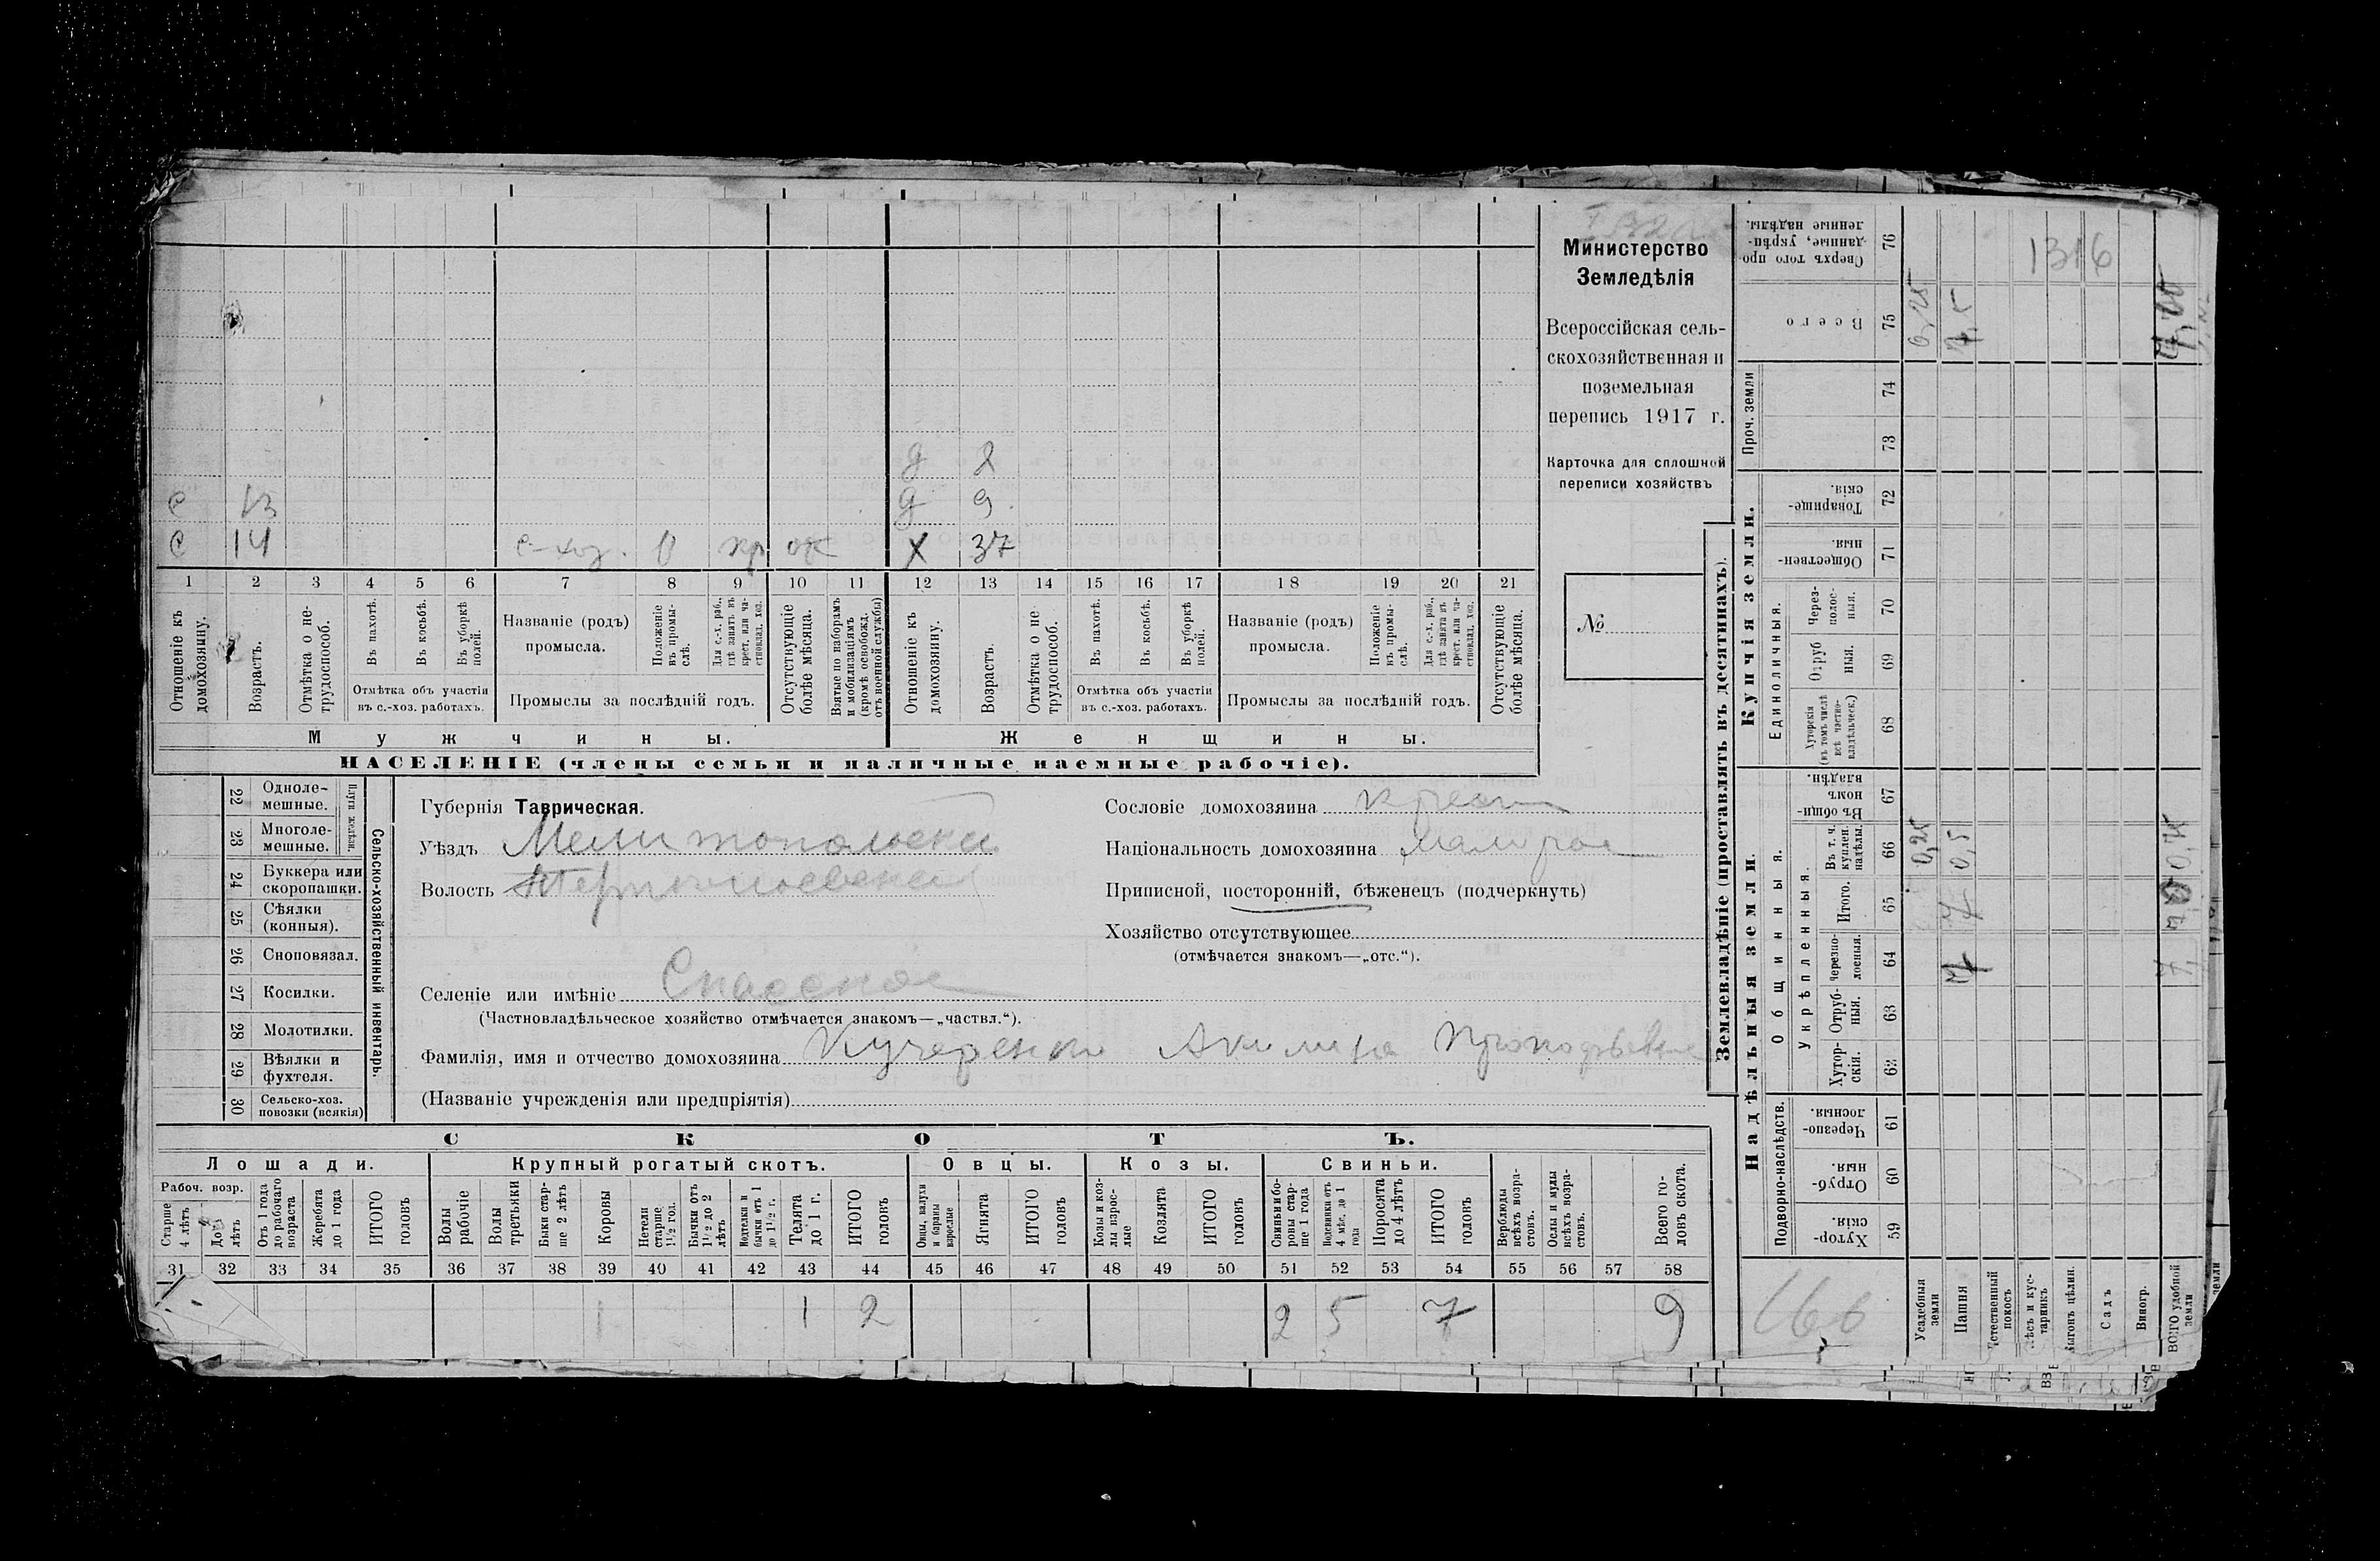 Министерство
Земледѣлія
Всероссійская сель-
скохозяйственная и
поземельная
перепись 1917 г.
Карточка для сплошной
переписи хозяйствъ
№
д 2
с 13 д 9
с 14 с-хоз. О кр от Х 37
1 2 3 4 5 6 7 8 9 10 11 12 13 14 15 16 17 18 19 20 21
Отношеніе къ домохозяину.
Возрастъ.
Отмѣтка о не-трудоспособ.
Въ пахотѣ.
Въ косьбѣ.
Въ уборкѣ полей.
Отмѣтка объ участіи
въ с.-хоз. работахъ.
Названіе (родъ)
промысла.
Положеніе въ промы-слѣ.
Для с.-х. раб., гдѣ занятъ въ крест. или ча-стновлад. хоз.
Промыслы за послѣдній годъ.
Отсутствующіе болѣе мѣсяца.
Взятые по наборамъ и мобилизаціямъ (кромѣ освобожд. отъ военной службы)
Отношеніе къ домохозяину.
Возрастъ.
Отмѣтка о не трудоспособ.
Въ пахотѣ.
Въ косьбѣ.
Въ уборкѣ полей.
Отмѣтка объ участіи
въ с.-хоз. работахъ.
Названіе (родъ)
промысла.
Положеніе въ промы-слѣ.
Для с.-х. раб., гдѣ занята въ крест. или ча-стновлад. хоз.
Промыслы за послѣдній годъ.
Отсутствующіе болѣе мѣсяца.
Мужчины. Женщины.
НАСЕЛЕНІЕ (члены семьи и наличные наемные рабочіе).
Сельско-хозяйственный инвентарь.
Плуги желѣзн.
22 Одноле-мешные.
23 Многоле-мешные.
24 Буккера или скоропашки.
25 Сѣялки (конныя).
26 Сноповязал.
27 Косилки.
28 Молотилки.
29 Вѣялки и фухтеля.
30 Сельско-хоз. повозки (всякія)
Губернія Таврическая.
Уѣздъ Мелитопольскій
Волость
Селеніе или имѣніе Спасское
(Частновладѣльческое хозяйство отмѣчается знакомъ—„частвл.“).
Фамилія, имя и отчество домохозяина Кучеренко Акилина Прокофьевна
(Названіе учрежденія или предпріятія)
Сословіе домохозяина крест
Національность домохозяина малорос
Приписной, посторонній, бѣженецъ (подчеркнуть)
Хозяйство отсутствующее
(отмѣчается знакомъ—„отс.“).
СКОТЪ.
Лошади. Крупный рогатый скотъ. Овцы. Козы. Свиньи.
Рабоч. возр.
Старше 4 лѣтъ
До 4 лѣтъ
Отъ 1 года до рабочаго возраста
Жеребята до 1 года
ИТОГО головъ
Волы рабочіе
Волы третьяки
Быки стар-ше 2 лѣтъ
Коровы
Нетели старше 1½ год.
Бычки отъ 1½ до 2 лѣтъ
Нетелки и бычки отъ 1 до 1½ г.
Телята до 1 г.
ИТОГО головъ
Овцы, валухи и бараны взрослые
Ягнята
ИТОГО головъ
Козы и коз-лы взрос-лые
Козлята
ИТОГО головъ
Свиньи и бо-ровы стар-ше 1 года
Подсвинки отъ 4 мѣс. до 1 года
Поросята до 4 лѣтъ
ИТОГО головъ
Верблюды всѣхъ возра-стовъ.
Ослы и мулы всѣхъ возра-стовъ.
Всего го-ловъ скота.
31 32 33 34 35 36 37 38 39 40 41 42 43 44 45 46 47 48 49 50 51 52 53 54 55 56 57 58
1 1 2 2 5 7 9
Землевладѣніе (проставлять въ десятинахъ).
Надѣльныя земли. Купчія земли.
Подворно-наслѣдств.
Общинныя.
Укрѣпленныя.
Единоличныя.
Проч. земли
59 Хутор-скія.
60 Отруб-ныя.
61 Черезпо-лосныя.
62 Хутор-скія.
63 Отруб-ныя.
64 Черезпо-лосныя.
65 Итого.
66 Въ т. ч. куплен. надѣлы.
67 Въ общин-номъ владѣн.
68 Хуторскія (въ томъ числѣ всѣ частно-владѣльческ.)
69 Отруб ныя.
70 Через-полос-ныя.
71 Обществен-ныя.
72 Товарище-скія.
73
74
75 Всего
76 Сверхъ того про-данные, укрѣп-ленные надѣлы.
Усадебныя земли 0,25 0,25
Пашня 7 7 0,5 7,5
Естественный покосъ
Лѣсъ и кус-тарникъ
Выгонъ цѣлин.
Садъ
Виногр.
Всего удобной земли
1316
166